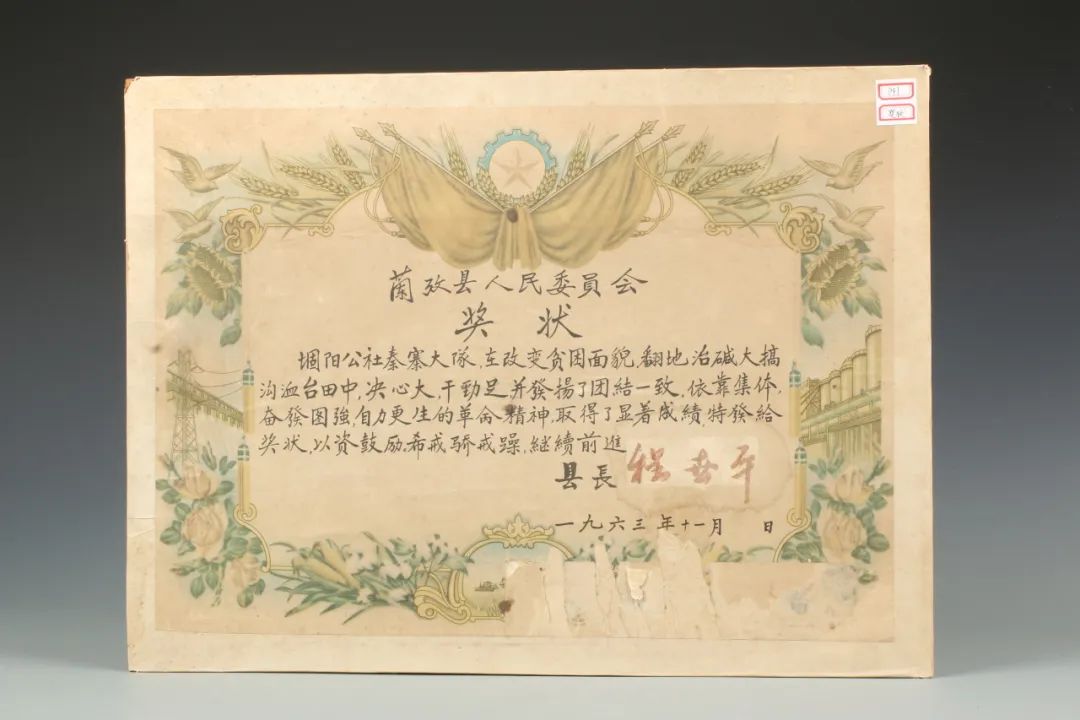 蘭攷县人民委員会
奖状
堌阳公社秦寨大隊,在改变贫困面貌,翻地治碱大搞
沟洫台田中,决心大,干勁足,并發揚了团結一致,依靠集体,
奋發图強,自力更生的革命精神,取得了显著成績,特發給
奖状,以资鼓励,希戒骄戒躁,継續前進
县長 程世平
一九六三年十一月 日